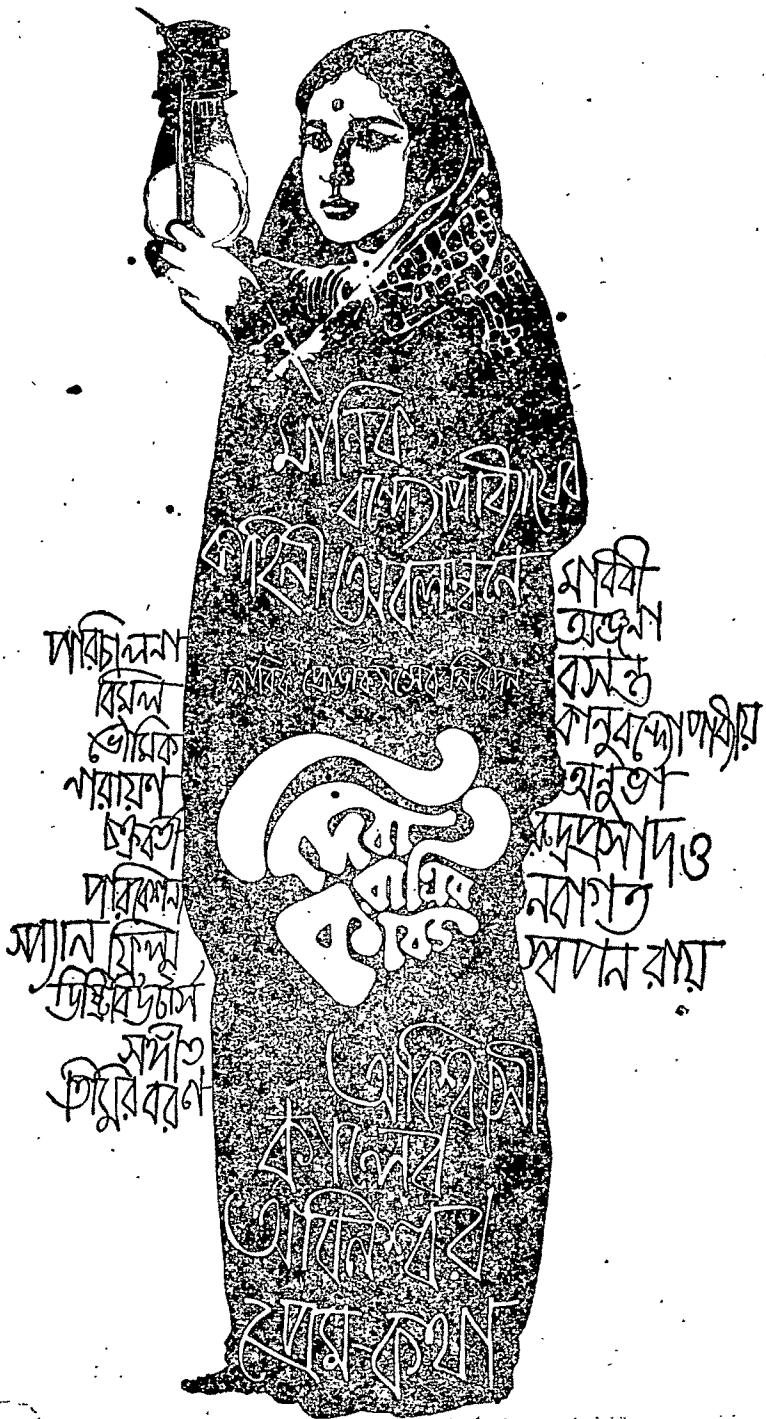 মানিক
বন্দ্যোপাধ্যায়ের
কাহিনী অবলম্বনে
নাবিক প্রোডাকসন্সের নিবেদন
দিবা
রাত্রির
কাব্য
অবিশ্বাসী
কালের
অবিনশ্বর
প্রেম-কথা
পরিচালনা
বিমল
ভৌমিক
নারায়ণ
চক্রবর্তী
পরিবেশনা
স্প্যান ফিল্ম
ডিষ্ট্রিবিউটার্স
সঙ্গীত
তিমির বরণ
মাধবী
অঞ্জনা
বসন্ত
কানু বন্দ্যোপাধ্যায়
অনুভা
রুদ্রপ্রসাদ ও
নবাগত
স্বপন রায়